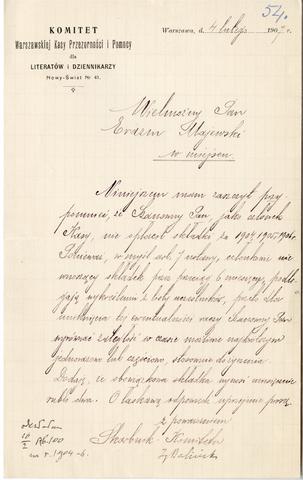 54.
KOMITET
Warszawskiej Kasy Przezorności i Pomocy
dla
LITERATÓW i DZIENNIKARZY
Nowy-Świat Nr 41.
Warszawa, d. 4 lutego 1907 r.
Wielmożny Pan
Erazm Majewski
w miejscu
Niniejszem mam zaszczyt przy-
pomnieć, że Szanowny Pan, jako członek
Kasy, nie spłacił składki za 1904, 1905, 1906 r.
Ponieważ, w myśl art. 7 ustawy, członkowie nie
wnoszący składek przez przeciąg 6 miesięcy, podle-
gają wykreśleniu z listy uczestników, przeto dla
uniknięcia tej ewentualności raczy Szanowny Pan
wyrównać zaległość w czasie możliwie najkrótszym
jednorazowo lub częściowo, stosownie do życzenia.
Dodaję, że obowiązkowa składka wynosi miesięcznie
rubli dwa. O łaskawą odpowiedź uprzejmie proszę
z poważaniem
Skarbnik Komitetu
Z Baliński
odesłałem
10/II rb. 100
za r. 1904-6.